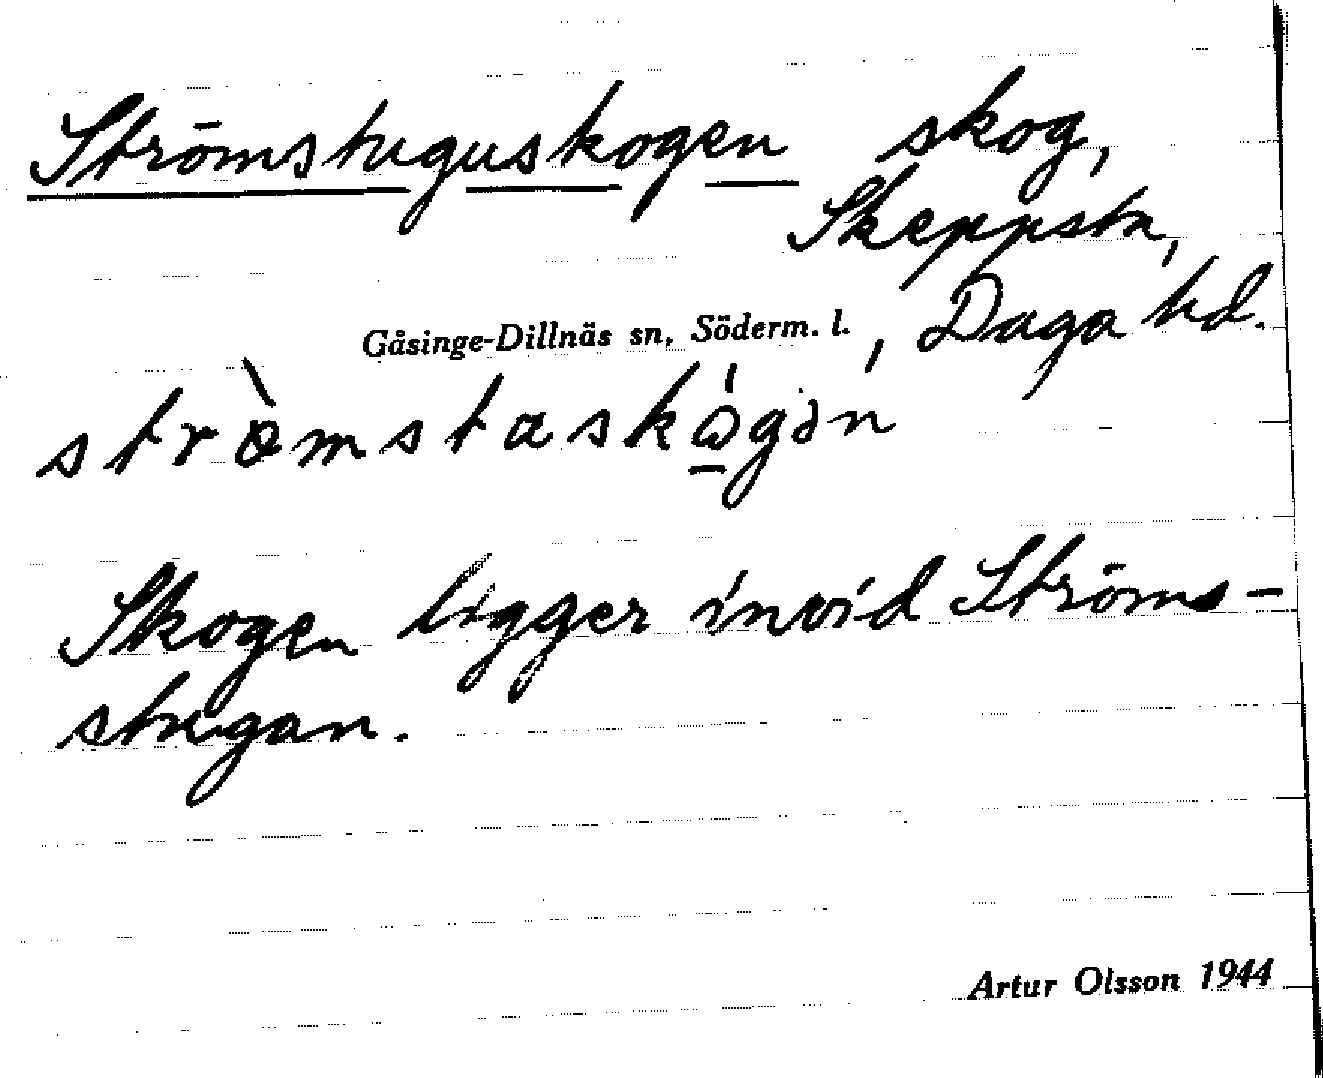 Strömstuguskogen skog,
Skeppsta,
Gåsinge-Dillnäs sn, Söderm. l., Daga hd.
strö̀mstaskɷ́gən
Skogen ligger invid Ströms-
stugan.
Artur Olsson 1944